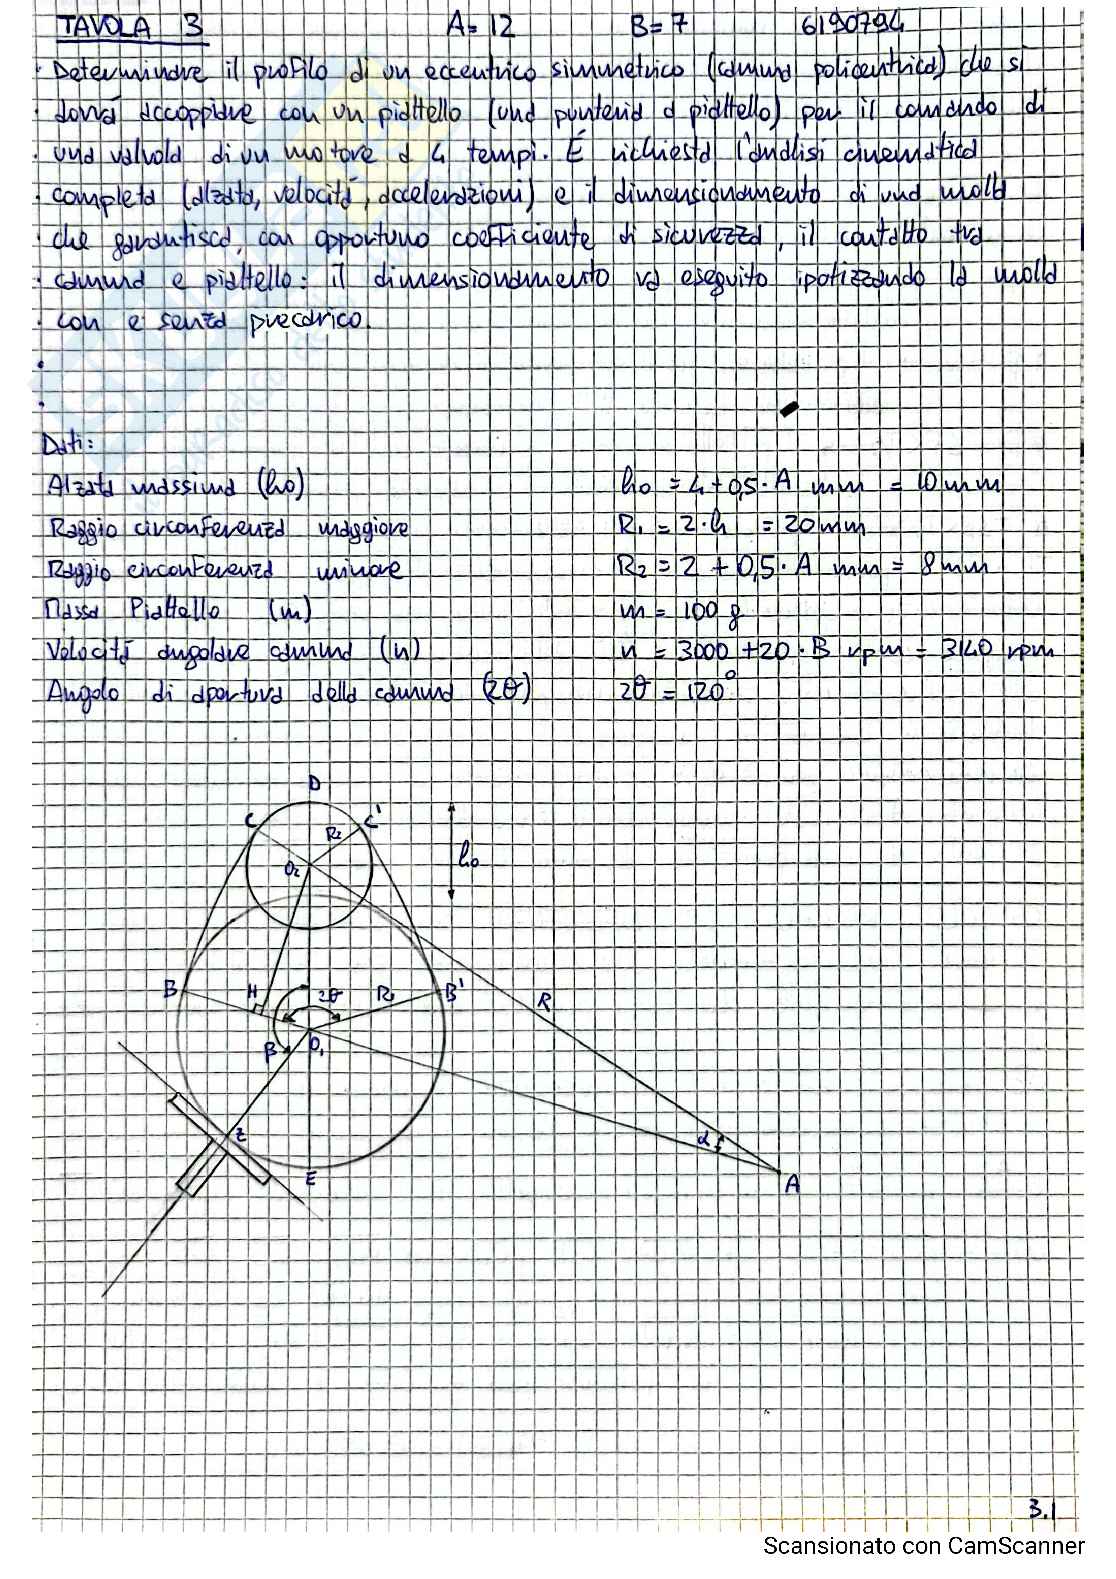 TAVOLA 3 A=12 B=7 6190794
Determinare il profilo di un eccentrico simmetrico (camma policentrica) che si
dovrà accoppiare con un piattello (una punteria a piattello) per il comando di
una valvola di un motore a 4 tempi. È richiesta l'analisi cinematica
completa (alzata, velocità, accelerazioni) e il dimensionamento di una molla
che garantisca, con opportuno coefficiente di sicurezza, il contatto tra
camma e piattello: il dimensionamento va eseguito ipotizzando la molla
con e senza precarico.
Dati:
Alzata massima (h0) h0 = 4+0,5·A mm = 10mm
Raggio circonferenza maggiore R1 = 2·h = 20mm
Raggio circonferenza minore R2 = 2+0,5·A mm = 8mm
Massa Piattello (m) m = 100 g
Velocità angolare camma (n) n = 3000+20·B rpm = 3140 rpm
Angolo di apertura della camma (2θ) 2θ = 120°
D
C C'
R2
h0
O2
B H 2θ R1 B' R
β O1
Z α
E A
3.1
Scansionato con CamScanner